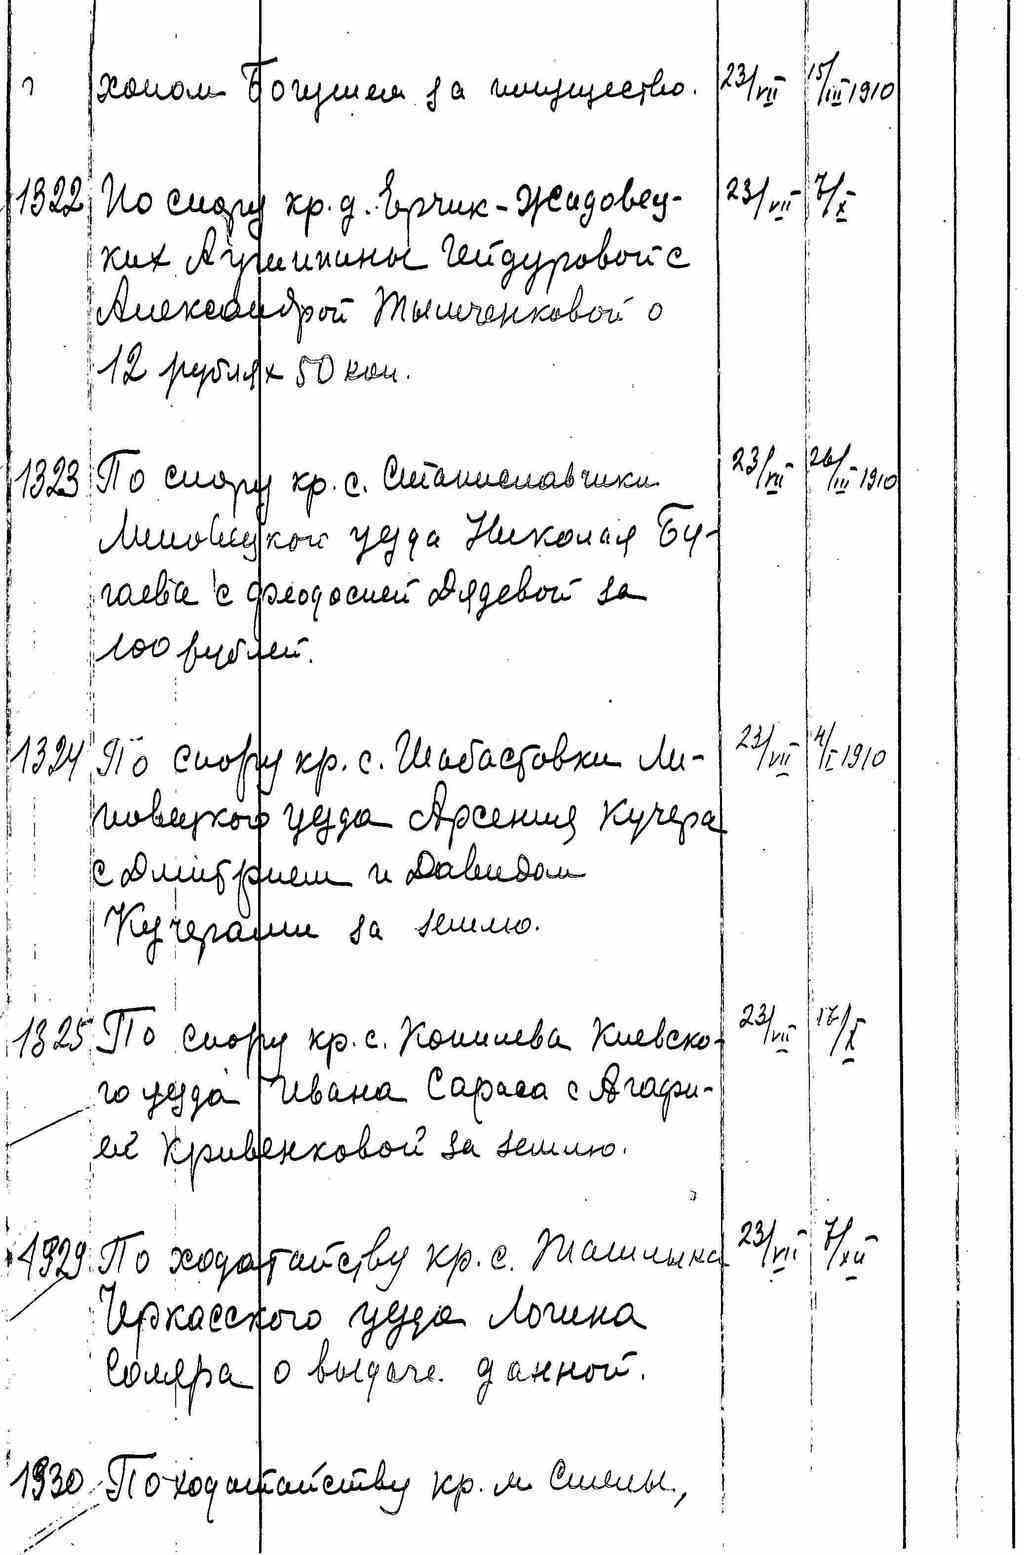 хоном Богушем за имущество. 23/VII 15/III 1910
1322 По спору кр. д. Ерчик-Жидовец-
ких Агриппины Гейдуровой с 23/VII 7/X
Александрой Тымченковой о
12 рублях 50 коп.
1323 По спору кр. с. Станиславчики 23/VII 26/III 1910
Липовецкого уезда Николая Бу-
гаева с Феодосией Дядевой за
100 рублей.
1324 По спору кр. с. Шабастовки Ли- 23/VII 4/I 1910
повецкого уезда Арсения Кучера
с Дмитрием и Давидом
Кучерами за землю.
1325 По спору кр. с. Копилева Киевско- 23/VII 17/X
го уезда Ивана Сараса с Агафи-
ей Кривенковой за землю.
1929 По ходатайству кр. с. Ташлыка 23/VII 7/XII
Черкасского уезда Логина
Соляра о выдаче данной.
1930 По ходатайству кр. м. Смелы,